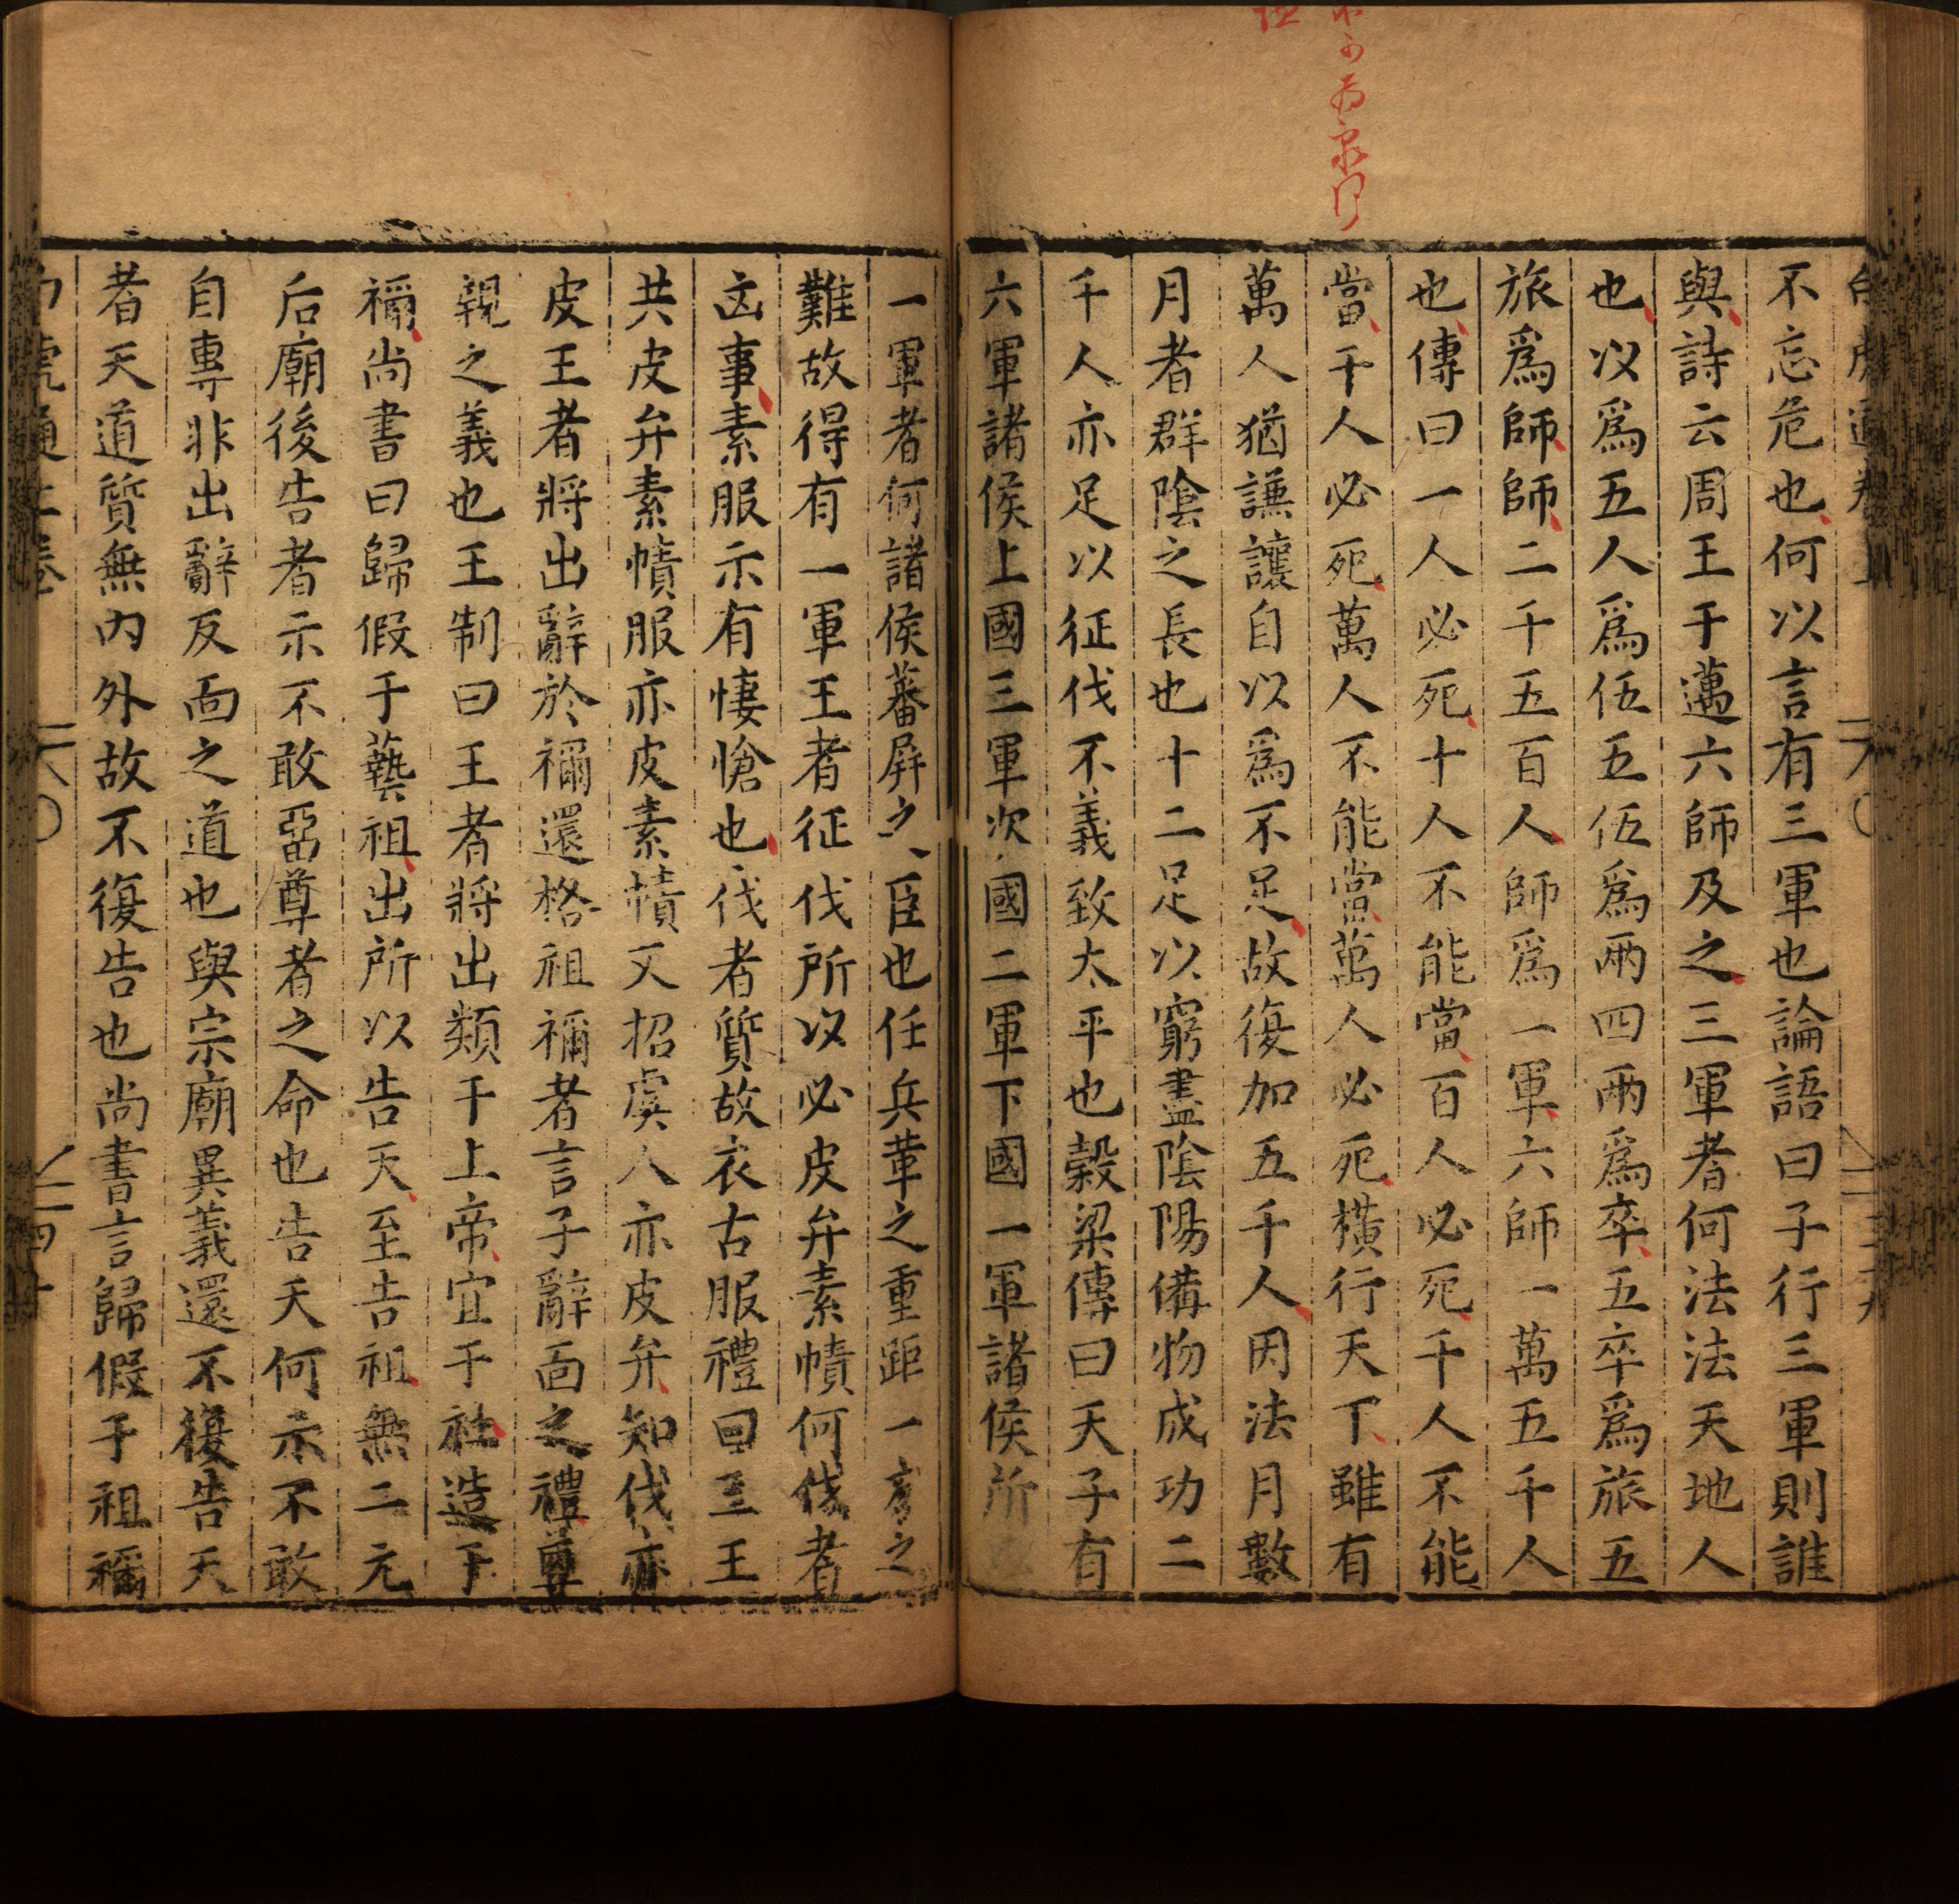 不忘危也何以言有三軍也論語曰子行三軍則誰
與詩云周王于邁六師及之三軍者何法法天地人
也以爲五人爲伍五伍爲兩四兩爲卒五卒爲旅五
旅爲師師二千五百人師爲一軍六師一萬五千人
也傳曰一人必死十人不能當百人必死千人不能
當千人必死萬人不能當萬人必死橫行天下雖有
萬人猶謙讓自以爲不足故復加五千人因法月數
月者群陰之長也十二足以窮盡陰陽備物成功二
千人亦足以征伐不義致太平也穀梁傳曰天子有
六軍諸侯上國三軍次國二軍下國一軍諸侯所
一軍者何諸侯蕃屏之臣也任兵革之重距一方之
難故得有一軍王者征伐所以必皮弁素幘何伐者
凶事素服示有悽愴也伐者質故衣古服禮曰王
共皮弁素幘服亦皮素幘又招虞人亦皮弁知伐亦
皮王者將出辭於禰還格祖禰者言子辭面之禮尊
親之義也王制曰王者將出類于上帝宜于社造于
禰尚書曰歸假于藝祖出所以告天至告祖無二元
后廟後告者示不敢留尊者之命也告天何示不敢
自專非出辭反面之道也與宗廟異義還不復告天
者天道質無內外故不復告也尚書言歸假于祖禰